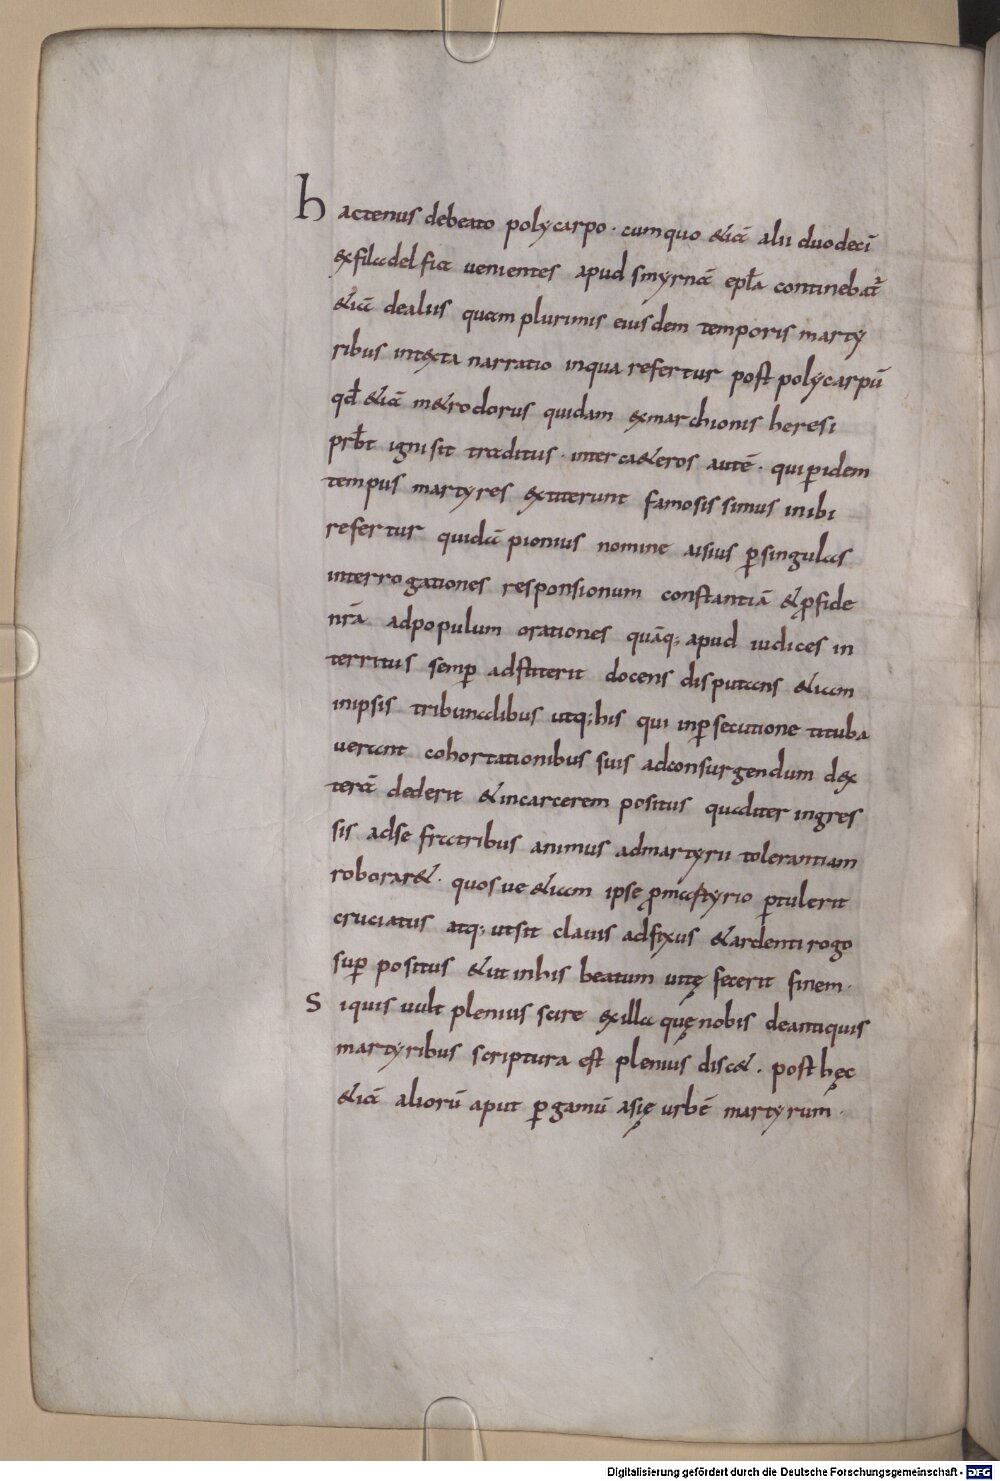 Hactenus debeato polycarpo · cumquo &iā alii duodecī
exfiladelfia uenientes apud smyrnā epła continebat᷑
&iā dealiis quam plurimis eiusdem temporis marty
ribus intexta narratio inqua refertur post polycarpū
qđ &iā m&rodorus quidam exmarchionis heresi
prƀt ignisit traditus · interca&eros autē · qui ꝑidem
tempus martyres extiterunt famosissimus inibi
refertur quidā pionius nomine aisius ꝑsingulas
interrogationes responsionum constantiā &ꝓfide
nr̄a adpopulum orationes quāq; apud iudices in
territus semꝑ adstiterit docens disputans &iam
inipsis tribunalibus utq; his qui inꝑsecutione tituba
uerant cohortationibus suis adconsurgendum dex
terā dederit &incarcerem positus qualiter ingres
sis adse fratribus animus admartyrii tolerantiam
roborar& · quosue &iam ipse ꝓmartyrio ꝑtulerit
cruciatus atq; utsit clauis adfixus &ardenti rogo
suꝑ positus &ut inhis beatum uitę fecerit finem ·
Siquis uult plenius scire exilla quę nobis deantiquis
martyribus scriptura est plenius disc& . post hęc
&iā aliorū aput ꝑgamū asię urbē martyrum ·
Digitalisierung gefördert durch die Deutsche Forschungsgemeinschaft - DFG